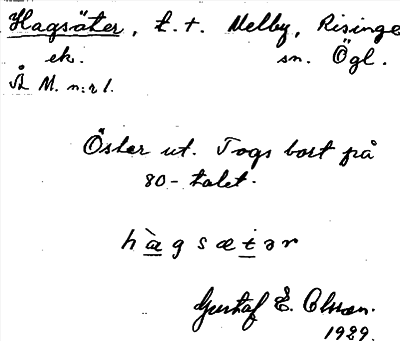 Hagsäter, t. t. Melby, Risinge
ek. sn. Ögl.
Å M. n:r 1.
Öster ut. Togs bort på
80-talet.
hàgsætər
Gustaf E. Olsson.
1929.